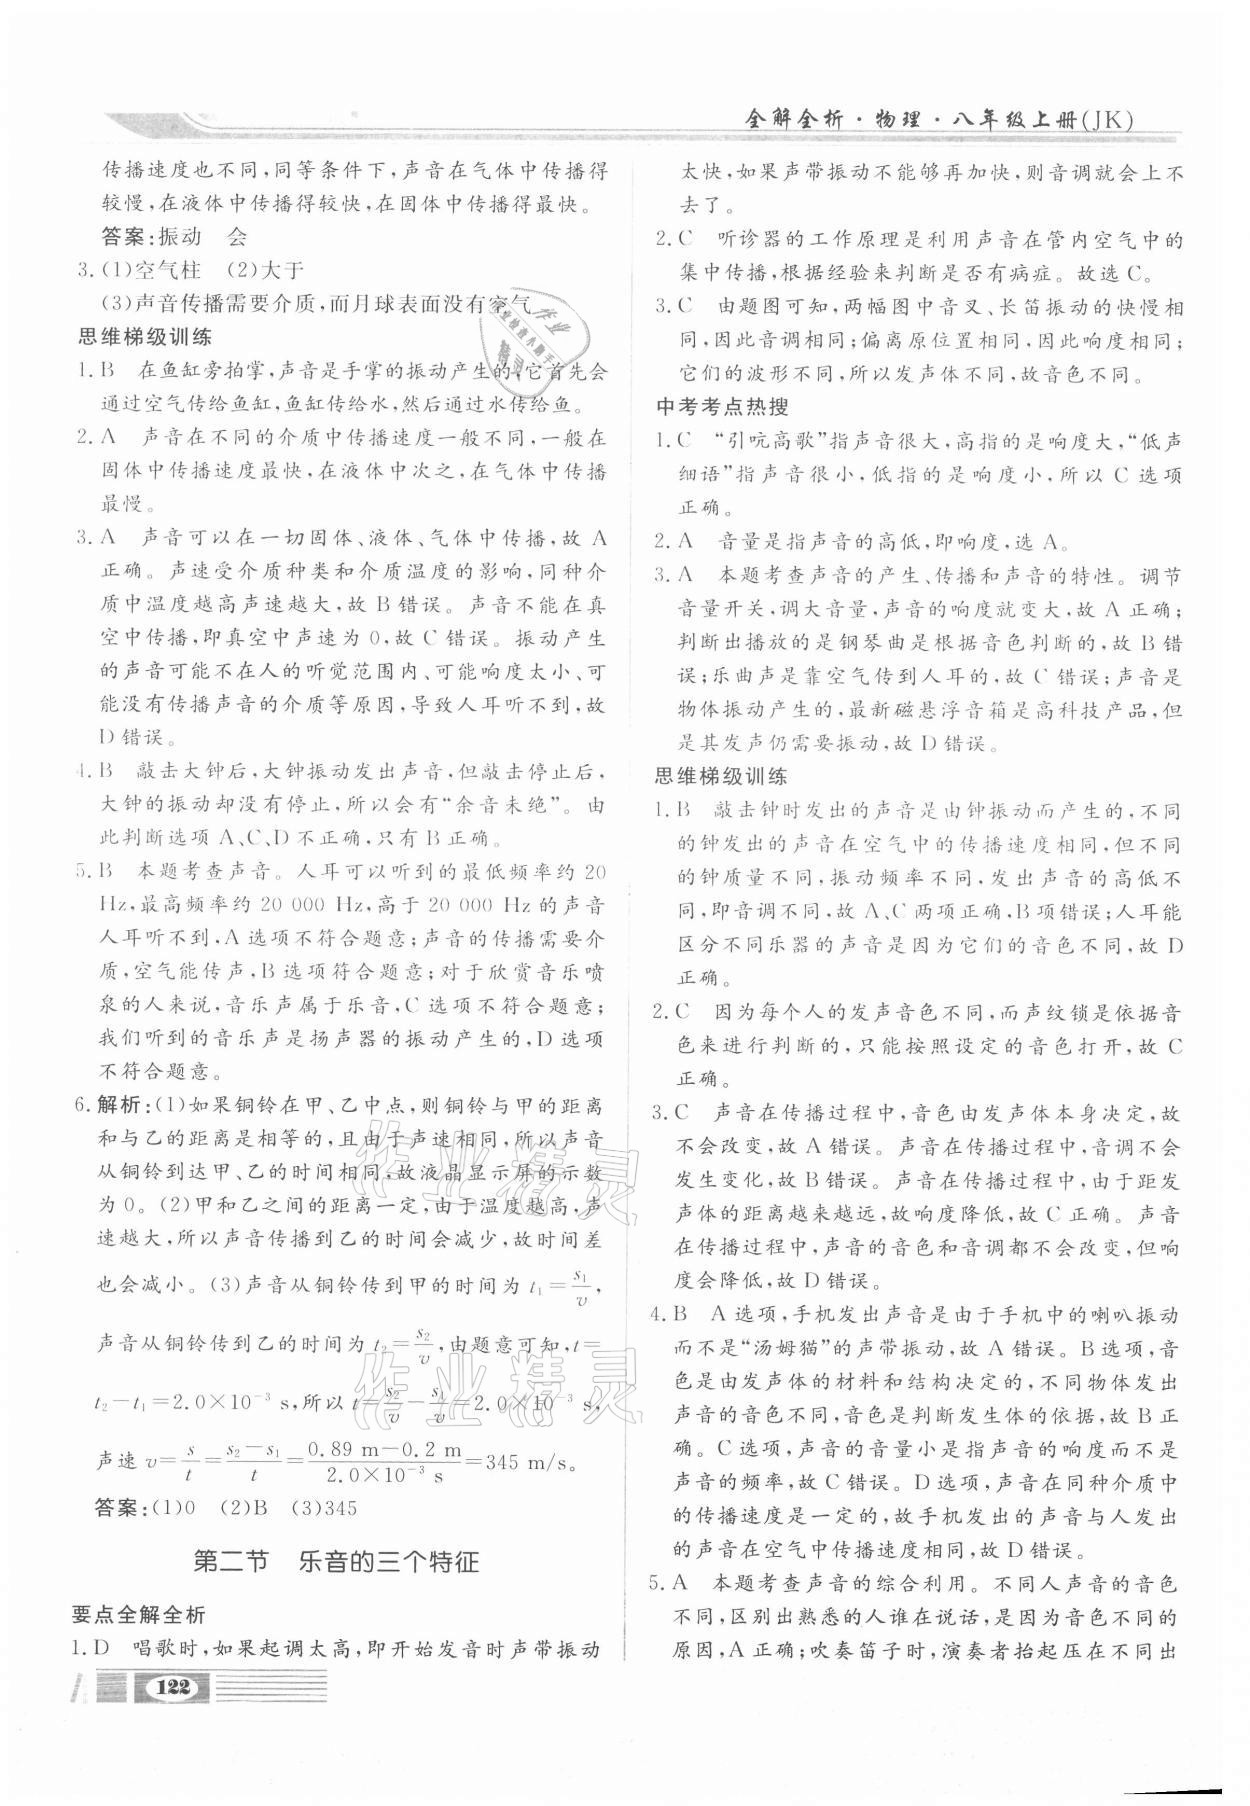 全解全析·物理·八年级上册(JK)
传播速度也不同,同等条件下,声音在气体中传播得
较慢,在液体中传播得较快,在固体中传播得最快。
答案:振动 会
3.(1)空气柱 (2)大于
(3)声音传播需要介质,而月球表面没有空气
思维梯级训练
1.B 在鱼缸旁拍掌,声音是手掌的振动产生的,它首先会
通过空气传给鱼缸,鱼缸传给水,然后通过水传给鱼。
2.A 声音在不同的介质中传播速度一般不同,一般在
固体中传播速度最快,在液体中次之,在气体中传播
最慢。
3.A 声音可以在一切固体、液体、气体中传播,故 A
正确。声速受介质种类和介质温度的影响,同种介
质中温度越高声速越大,故 B 错误。声音不能在真
空中传播,即真空中声速为 0,故 C 错误。振动产生
的声音可能不在人的听觉范围内、可能响度太小、可
能没有传播声音的介质等原因,导致人耳听不到,故
D 错误。
4.B 敲击大钟后,大钟振动发出声音,但敲击停止后,
大钟的振动却没有停止,所以会有“余音未绝”。由
此判断选项 A、C、D 不正确,只有 B 正确。
5.B 本题考查声音。人耳可以听到的最低频率约 20
Hz,最高频率约 20 000 Hz,高于 20 000 Hz 的声音
人耳听不到,A 选项不符合题意;声音的传播需要介
质,空气能传声,B 选项符合题意;对于欣赏音乐喷
泉的人来说,音乐声属于乐音,C 选项不符合题意;
我们听到的音乐声是扬声器的振动产生的,D 选项
不符合题意。
6.解析:(1)如果铜铃在甲、乙中点,则铜铃与甲的距离
和与乙的距离是相等的,且由于声速相同,所以声音
从铜铃到达甲、乙的时间相同,故液晶显示屏的示数
为 0。(2)甲和乙之间的距离一定,由于温度越高,声
速越大,所以声音传播到乙的时间会减少,故时间差
也会减小。(3)声音从铜铃传到甲的时间为 t₁=s₁/v,
声音从铜铃传到乙的时间为 t₂=s₂/v,由题意可知,t=
t₂-t₁=2.0×10⁻³ s,所以 t=s₂/v-s₁/v=2.0×10⁻³ s,
声速 v=s/t=(s₂-s₁)/t=(0.89 m-0.2 m)/(2.0×10⁻³ s)=345 m/s。
答案:(1)0 (2)B (3)345
第二节 乐音的三个特征
要点全解全析
1.D 唱歌时,如果起调太高,即开始发音时声带振动
122
太快,如果声带振动不能够再加快,则音调就会上不
去了。
2.C 听诊器的工作原理是利用声音在管内空气中的
集中传播,根据经验来判断是否有病症。故选 C。
3.C 由题图可知,两幅图中音叉、长笛振动的快慢相
同,因此音调相同;偏离原位置相同,因此响度相同;
它们的波形不同,所以发声体不同,故音色不同。
中考考点热搜
1.C “引吭高歌”指声音很大,高指的是响度大,“低声
细语”指声音很小,低指的是响度小,所以 C 选项
正确。
2.A 音量是指声音的高低,即响度,选 A。
3.A 本题考查声音的产生、传播和声音的特性。调节
音量开关,调大音量,声音的响度就变大,故 A 正确;
判断出播放的是钢琴曲是根据音色判断的,故 B 错
误;乐曲声是靠空气传到人耳的,故 C 错误;声音是
物体振动产生的,最新磁悬浮音箱是高科技产品,但
是其发声仍需要振动,故 D 错误。
思维梯级训练
1.B 敲击钟时发出的声音是由钟振动而产生的,不同
的钟发出的声音在空气中的传播速度相同,但不同
的钟质量不同,振动频率不同,发出声音的高低不
同,即音调不同,故 A、C 两项正确,B 项错误;人耳能
区分不同乐器的声音是因为它们的音色不同,故 D
正确。
2.C 因为每个人的发声音色不同,而声纹锁是依据音
色来进行判断的,只能按照设定的音色打开,故 C
正确。
3.C 声音在传播过程中,音色由发声体本身决定,故
不会改变,故 A 错误。声音在传播过程中,音调不会
发生变化,故 B 错误。声音在传播过程中,由于距发
声体的距离越来越远,故响度降低,故 C 正确。声音
在传播过程中,声音的音色和音调都不会改变,但响
度会降低,故 D 错误。
4.B A 选项,手机发出声音是由于手机中的喇叭振动
而不是“汤姆猫”的声带振动,故 A 错误。B 选项,音
色是由发声体的材料和结构决定的,不同物体发出
声音的音色不同,音色是判断发生体的依据,故 B 正
确。C 选项,声音的音量小是指声音的响度而不是
声音的频率,故 C 错误。D 选项,声音在同种介质中
的传播速度是一定的,故手机发出的声音与人发出
的声音在空气中传播速度相同,故 D 错误。
5.A 本题考查声音的综合利用。不同人声音的音色
不同,区别出熟悉的人谁在说话,是因为音色不同的
原因,A 正确;吹奏笛子时,演奏者抬起压在不同出
作业精灵
作业精灵